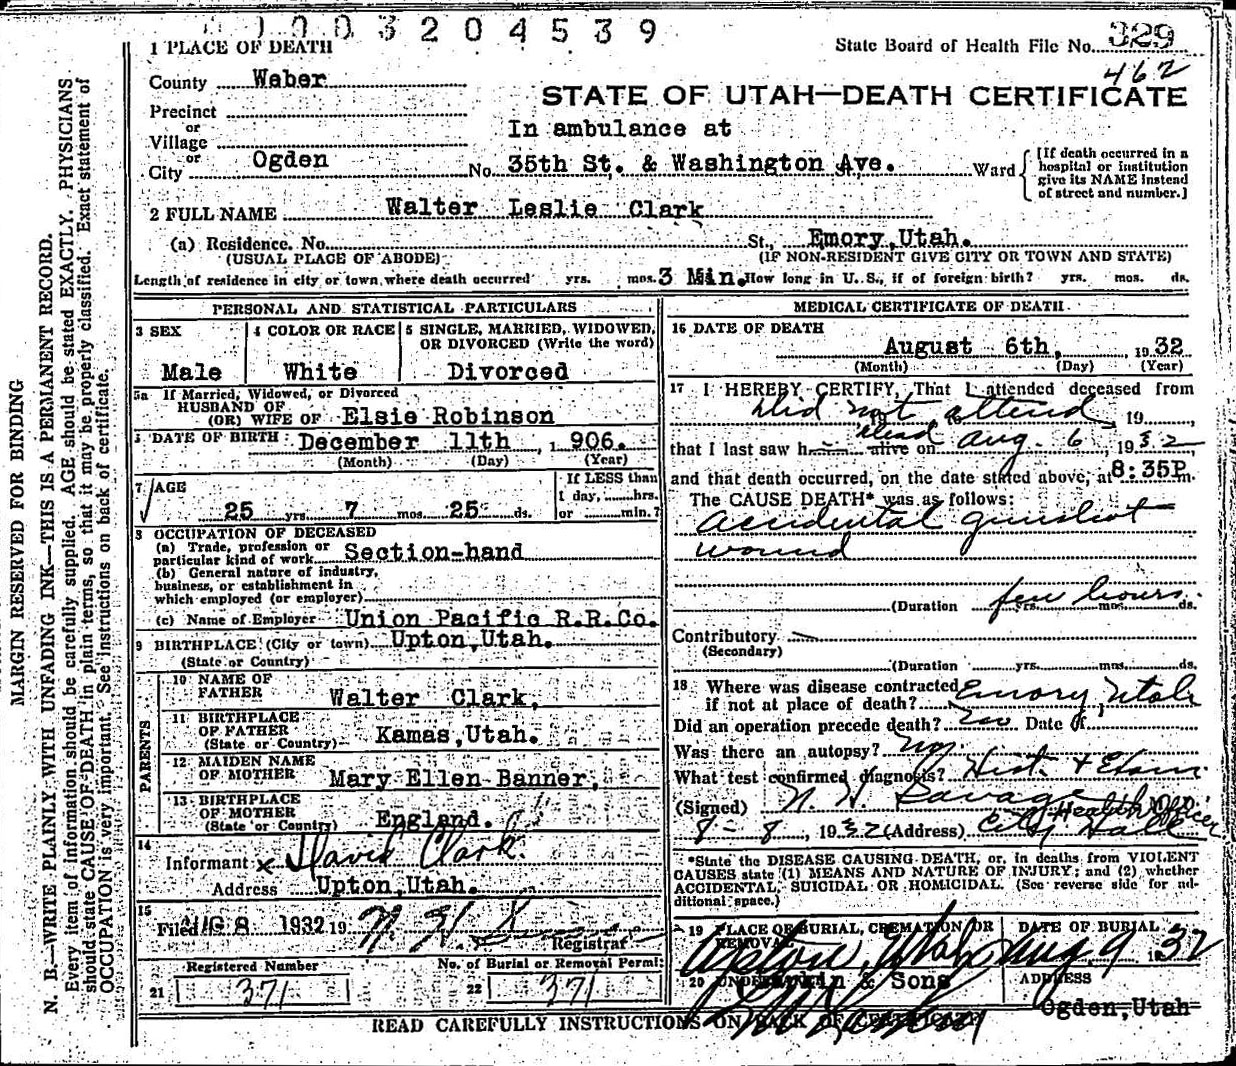 1003204539
1 PLACE OF DEATH
State Board of Health File No. 329
462
County Weber
STATE OF UTAH—DEATH CERTIFICATE
Precinct
or
Village
In ambulance at
or
City Ogden No. 35th St. & Washington Ave. Ward
[If death occurred in a
hospital or institution
give its NAME instead
of street and number.]
2 FULL NAME Walter Leslie Clark
(a) Residence. No. St., Emory, Utah.
(USUAL PLACE OF ABODE) (IF NON-RESIDENT GIVE CITY OR TOWN AND STATE)
Length of residence in city or town where death occurred yrs. mos. 3 Min. How long in U. S., if of foreign birth? yrs. mos. ds.
PERSONAL AND STATISTICAL PARTICULARS
3 SEX
Male
4 COLOR OR RACE
White
5 SINGLE, MARRIED, WIDOWED,
OR DIVORCED (Write the word)
Divorced
5a If Married, Widowed, or Divorced
HUSBAND OF
(OR) WIFE OF Elsie Robinson
DATE OF BIRTH December 11th, 1906.
(Month) (Day) (Year)
7 AGE
25 yrs. 7 mos. 25 ds.
If LESS than
1 day, hrs.
or min.?
8 OCCUPATION OF DECEASED
(a) Trade, profession or
particular kind of work Section-hand
(b) General nature of industry,
business, or establishment in
which employed (or employer)
(c) Name of Employer Union Pacific R.R.Co.
9 BIRTHPLACE (City or town) Upton, Utah.
(State or Country)
PARENTS
10 NAME OF
FATHER Walter Clark,
11 BIRTHPLACE
OF FATHER
(State or Country) Kamas, Utah.
12 MAIDEN NAME
OF MOTHER Mary Ellen Banner,
13 BIRTHPLACE
OF MOTHER
(State or Country) England.
14
Informant x David Clark.
Address Upton, Utah.
15
Filed AUG 8 1932 19 N. H. Registrar
Registered Number
21 371
No. of Burial or Removal Permit
22 371
MEDICAL CERTIFICATE OF DEATH
16 DATE OF DEATH
August 6th, 1932
(Month) (Day) (Year)
17 I HEREBY CERTIFY, That I attended deceased from
Did not attend 19
that I last saw h alive on dead Aug. 6, 1932
and that death occurred, on the date stated above, at 8:35P m.
The CAUSE DEATH* was as follows:
accidental gunshot
wound
(Duration few hours. yrs. mos. ds.
Contributory
(Secondary)
(Duration yrs. mos. ds.
18 Where was disease contracted
if not at place of death? Emory, Utah
Did an operation precede death? no Date of
Was there an autopsy? no.
What test confirmed diagnosis? Hist. & Exam
(Signed) N. H. Savage M.D.
Health Officer
8-8, 1932 (Address) City Hall
*State the DISEASE CAUSING DEATH, or, in deaths from VIOLENT
CAUSES state (1) MEANS AND NATURE OF INJURY; and (2) whether
ACCIDENTAL, SUICIDAL OR HOMICIDAL. (See reverse side for ad-
ditional space.)
19 PLACE OF BURIAL, CREMATION OR
REMOVAL
Upton, Utah
DATE OF BURIAL
Aug 9 1932
20 & Sons
ADDRESS
Ogden, Utah
READ CAREFULLY INSTRUCTIONS ON BACK OF CERTIFICATE
MARGIN RESERVED FOR BINDING
N. B.—WRITE PLAINLY WITH UNFADING INK—THIS IS A PERMANENT RECORD.
Every item of information should be carefully supplied. AGE should be stated EXACTLY. PHYSICIANS
should state CAUSE OF DEATH in plain terms, so that it may be properly classified. Exact statement of
OCCUPATION is very important. See instructions on back of certificate.